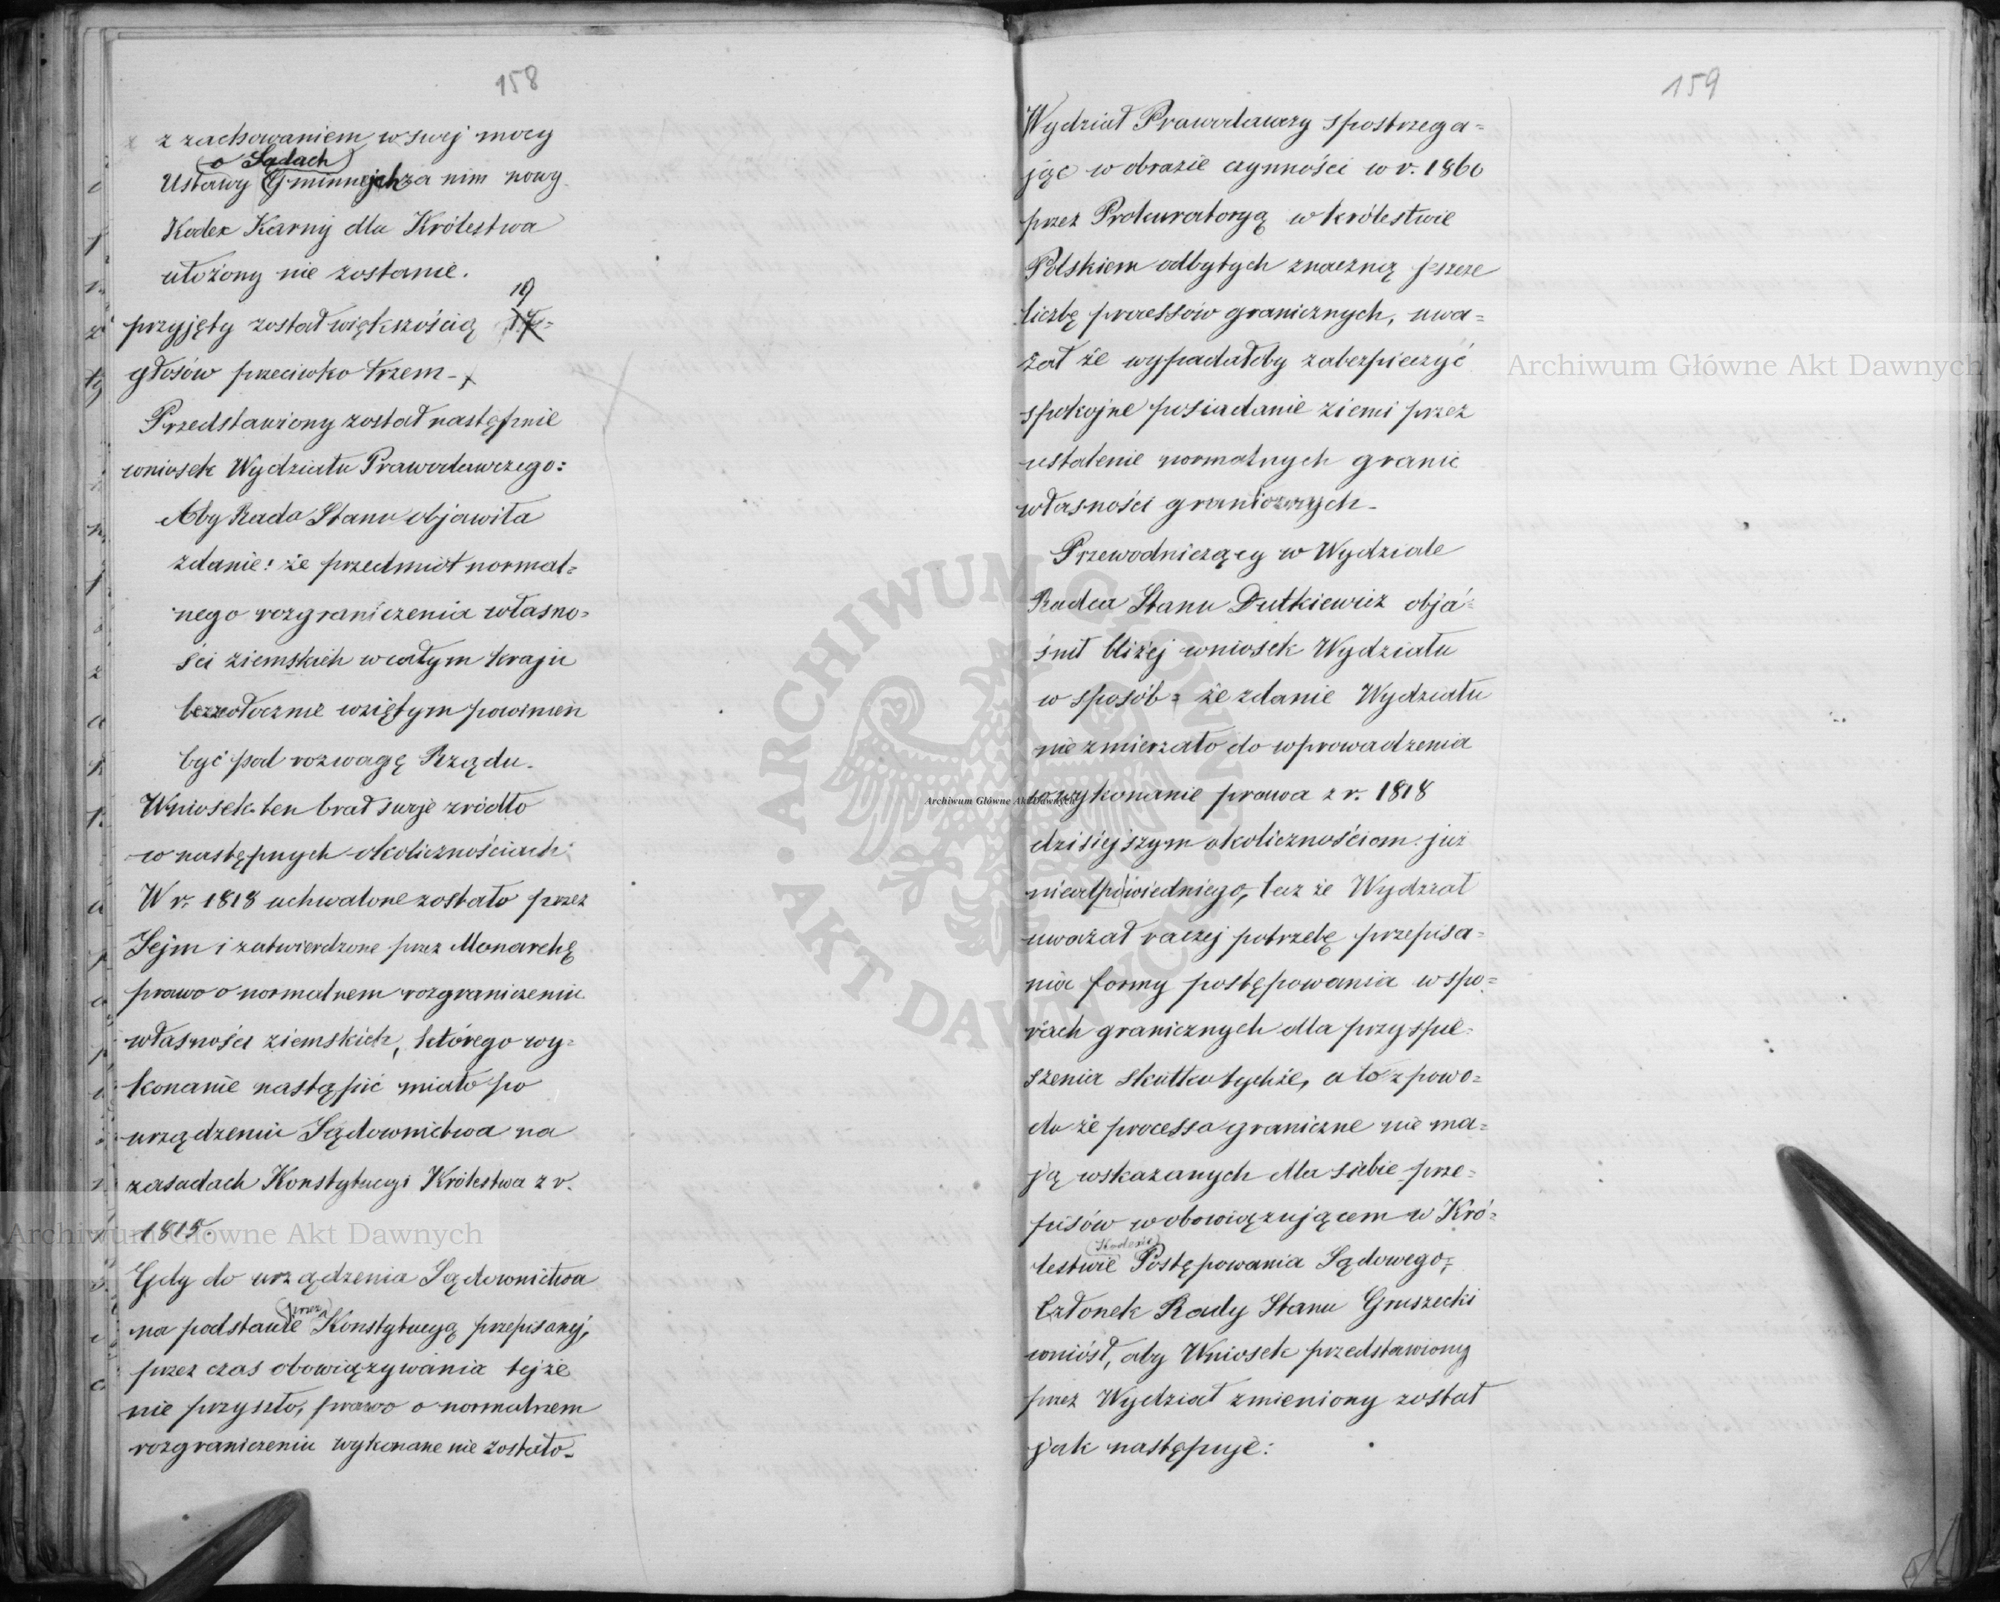 158
z zachowaniem w swej mocy
o Sądach
Ustawy Gminnych za nim nowy
Kodex Karny dla Królestwa
ułożony nie zostanie.
19
przyjęty został większością
głosów przeciwko trzem.
Przedstawiony został następnie
wniosek Wydziału Prawodawczego:
Aby Rada Stanu objawiła
zdanie: że przedmiot normal=
nego rozgraniczenia własno=
ści ziemskich w całym kraju
bezzwłocznie wziętym powinien
być pod rozwagę Rządu.
Wniosek ten brał swoje zródło
w następnych okolicznościach:
W r. 1818 uchwalone zostało przez
Sejm i zatwierdzone przez Monarchę
prawo o normalnem rozgraniczeniu
własności ziemskich, którego wy=
konanie nastąpić miało po
urządzeniu Sądownictwa na
zasadach Konstytucyi Królestwa z r.
1815.
Gdy do urządzenia Sądownictwa
przez
na podstawie Konstytucyą przepisanej,
przez czas obowiązywania tejże
nie przyszło, prawo o normalnem
rozgraniczeniu wykonane nie zostało.
159
Wydział Prawodawczy spostrzega=
jąc w obrazie czynności w r. 1860
przez Prokuratoryą w królestwie
Polskiem odbytych znaczną jeszcze
liczbę processów granicznych, uwa=
żał że wypadałoby zabezpieczyć
spokojne posiadanie ziemi przez
ustalenie normalnych granic
własności graniczących.
Przewodniczący w Wydziale
Radca Stanu Dutkiewicz obja=
śnił bliżej wniosek Wydziału
w sposób = że zdanie Wydziału
nie zmierzało do wprowadzenia
w wykonanie prawa z r. 1818
dzisiejszym okolicznościom już
nieodpowiedniego, lecz że Wydział
uważał raczej potrzebę przepisa=
nia formy postępowania w spo=
rach granicznych dla przyspie=
szenia skutku tychże, a to z powo=
du że processa graniczne nie ma=
ją wskazanych dla siebie prze=
pisów w obowiązującem w Kró=
Kodexie
lestwie Postępowania Sądowego,
Członek Rady Stanu Gruszecki
wniósł, aby Wniosek przedstawiony
przez Wydział zmieniony został
jak następuje:
Archiwum Główne Akt Dawnych
Archiwum Główne Akt Dawnych
Archiwum Główne Akt Dawnych
ARCHIWUM GŁÓWNE AKT DAWNYCH